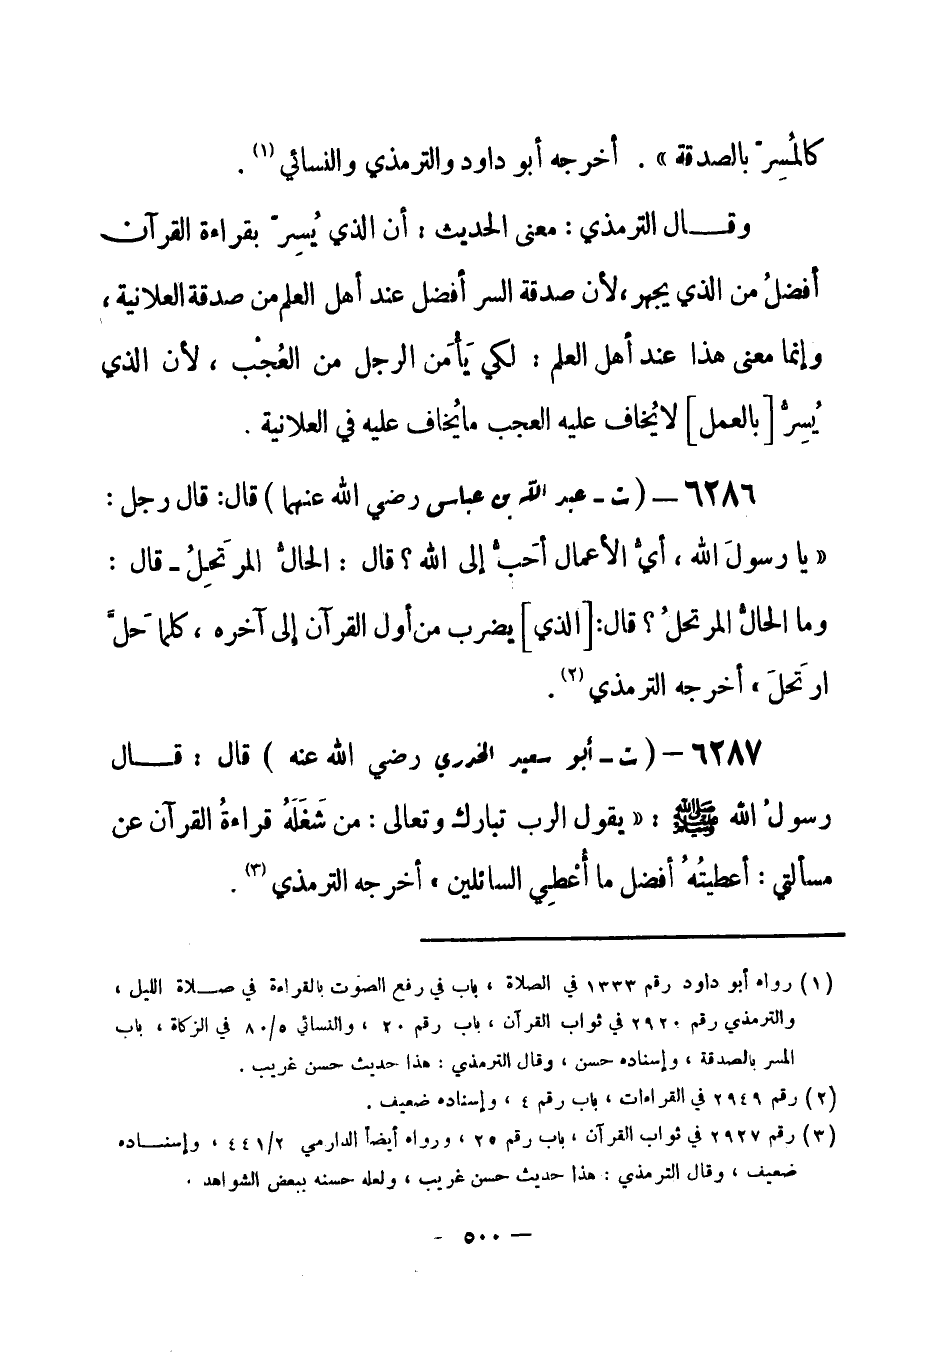 كالمُسِرّ بالصدقة » . أخرجه أبو داود والترمذي والنسائي (١) .
وقـــال الترمذي : معنى الحديث : أن الذي يُسِرّ بقراءة القرآن
أفضلُ من الذي يجهر ،لأن صدقة السر أفضل عند أهل العلم من صدقة العلانية ،
وإنما معنى هذا عند أهل العلم : لكي يَأمَن الرجل من العُجْب ، لأن الذي
يُسِرُّ [بالعمل] لا يُخاف عليه العجب ما يُخاف عليه في العلانية .
٦٢٨٦ – ( ت - عبد الله بن عباس رضي الله عنهما ) قال : قال رجل :
« يا رسولَ الله ، أيُّ الأعمال أحَبُّ إلى الله ؟ قال : الحالُّ المرتَحِلُ - قال :
وما الحالُّ المرتحلُ ؟ قال : [الذي] يضرب من أول القرآن إلى آخره ، كلما حَلَّ
ارتَحلَ » أخرجه الترمذي (٢) .
٦٢٨٧ – ( ت - أبو سعيد الخدري رضي الله عنه ) قال : قـــال
رسولُ الله ﷺ : « يقول الرب تبارك وتعالى : من شَغَلَهُ قراءةُ القرآن عن
مسألتي : أعطيتُهُ أفضل ما أُعْطِي السائلين » أخرجه الترمذي (٣) .
(١) رواه أبو داود رقم ١٣٣٣ في الصلاة ، باب في رفع الصوت بالقراءة في صـــلاة الليل ،
والترمذي رقم ٢٩٢٠ في ثواب القرآن ، باب رقم ٢٠ ، والنسائي ٨٠/٥ في الزكاة ، باب
المسر بالصدقة ، وإسناده حسن ، وقال الترمذي : هذا حديث حسن غريب .
(٢) رقم ٢٩٤٩ في القراءات ، باب رقم ٤ ، وإسناده ضعيف .
(٣) رقم ٢٩٢٧ في ثواب القرآن ، باب رقم ٢٥ ، ورواه أيضاً الدارمي ٤٤١/٢ ، وإسنـــاده
ضعيف ، وقال الترمذي : هذا حديث حسن غريب ، ولعله حسنه ببعض الشواهد .
– ٥٠٠ –